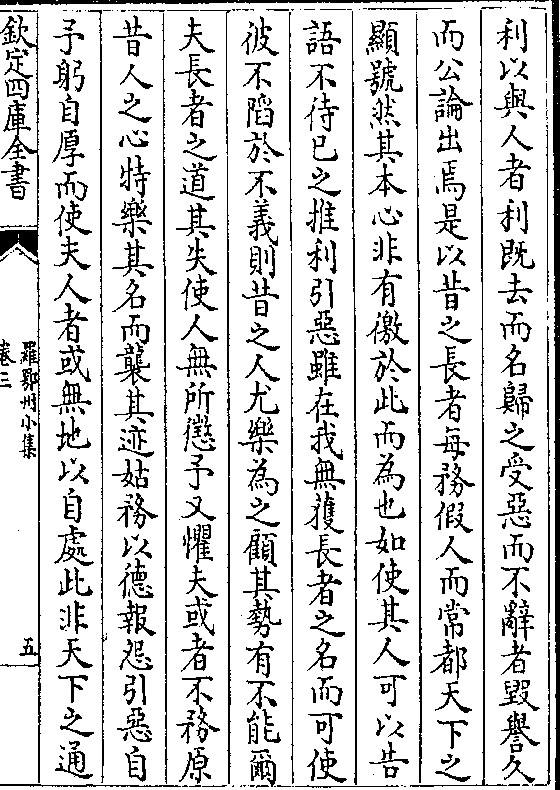 利以與人者利既去而名歸之受惡而不辭者毀譽久
而公論出焉是以昔之長者每務假人而常都天下之
顯號然其本心非有徼於此而為也如使其人可以告
語不待已之推利引惡雖在我無獲長者之名而可使
彼不䧟於不義則昔之人尤樂為之顧其勢有不能爾
夫長者之道其失使人無所懲予又懼夫或者不務原
昔人之心特樂其名而襲其迹姑務以德報怨引惡自
予躬自厚而使夫人者或無地以自處此非天下之通
欽定四庫全書
羅鄂州小集
卷三
五